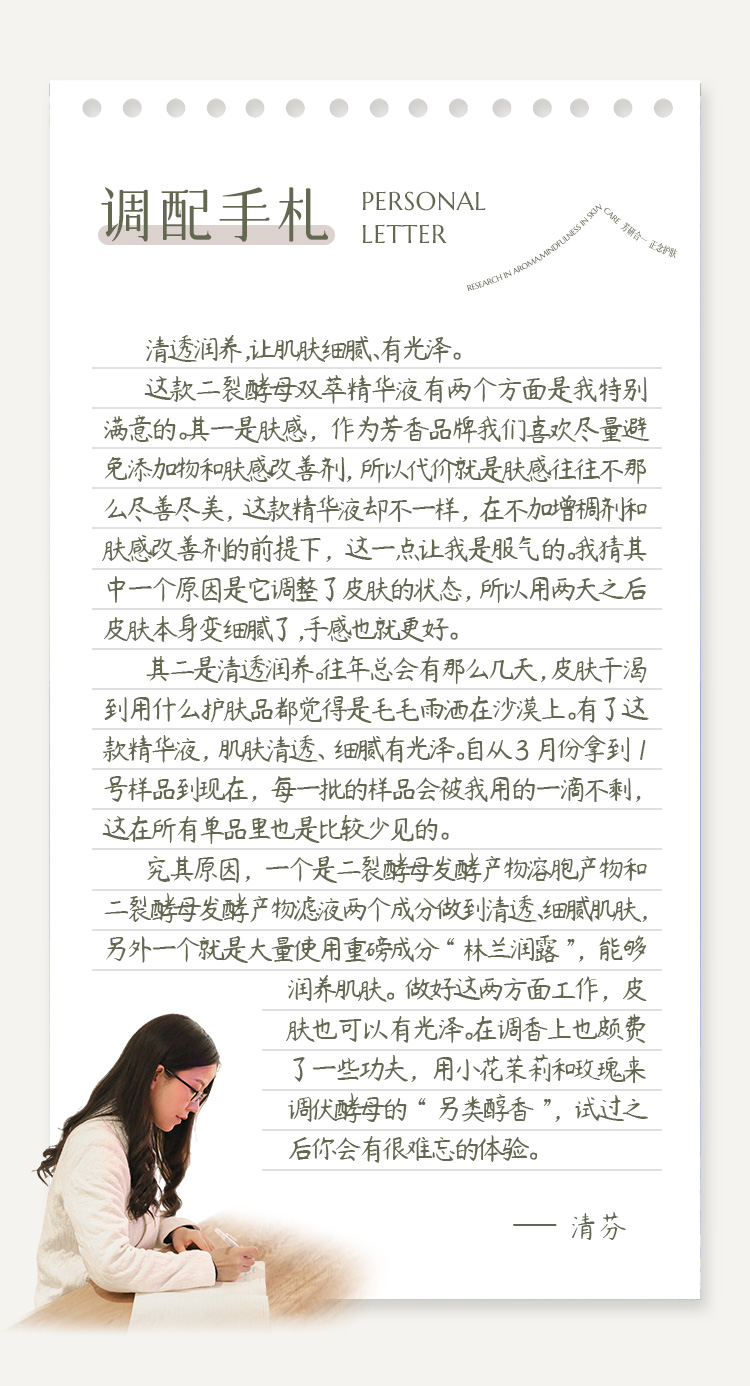 调配手札
PERSONAL
LETTER
RESEARCH IN AROMA,MINDFULNESS IN SKIN CARE 芳研合一 正念护肤
清透润养,让肌肤细腻、有光泽。
这款二裂酵母双萃精华液有两个方面是我特别
满意的。其一是肤感，作为芳香品牌我们喜欢尽量避
免添加物和肤感改善剂，所以代价就是肤感往往不那
么尽善尽美，这款精华液却不一样，在不加增稠剂和
肤感改善剂的前提下，这一点让我是服气的。我猜其
中一个原因是它调整了皮肤的状态，所以用两天之后
皮肤本身变细腻了,手感也就更好。
其二是清透润养。往年总会有那么几天，皮肤干渴
到用什么护肤品都觉得是毛毛雨洒在沙漠上。有了这
款精华液，肌肤清透、细腻有光泽。自从3月份拿到1
号样品到现在，每一批的样品会被我用的一滴不剩，
这在所有单品里也是比较少见的。
究其原因，一个是二裂酵母发酵产物溶胞产物和
二裂酵母发酵产物滤液两个成分做到清透、细腻肌肤，
另外一个就是大量使用重磅成分“林兰润露”，能够
润养肌肤。做好这两方面工作，皮
肤也可以有光泽。在调香上也颇费
了一些功夫，用小花茉莉和玫瑰来
调伏酵母的“另类醇香”，试过之
后你会有很难忘的体验。
—— 清芬